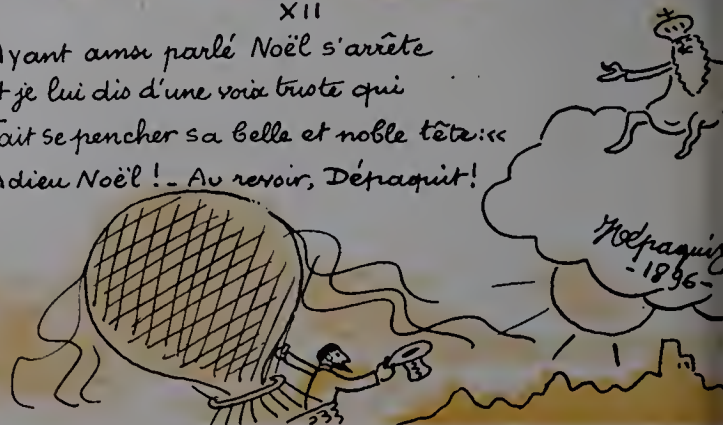 XII
yant ainsi parlé Noël s'arrête
t je lui dis d'une voix triste qui
ait se pencher sa belle et noble tête:«
dieu Noël ! - Au revoir, Dépaquit!
JDépaquit
-1896-